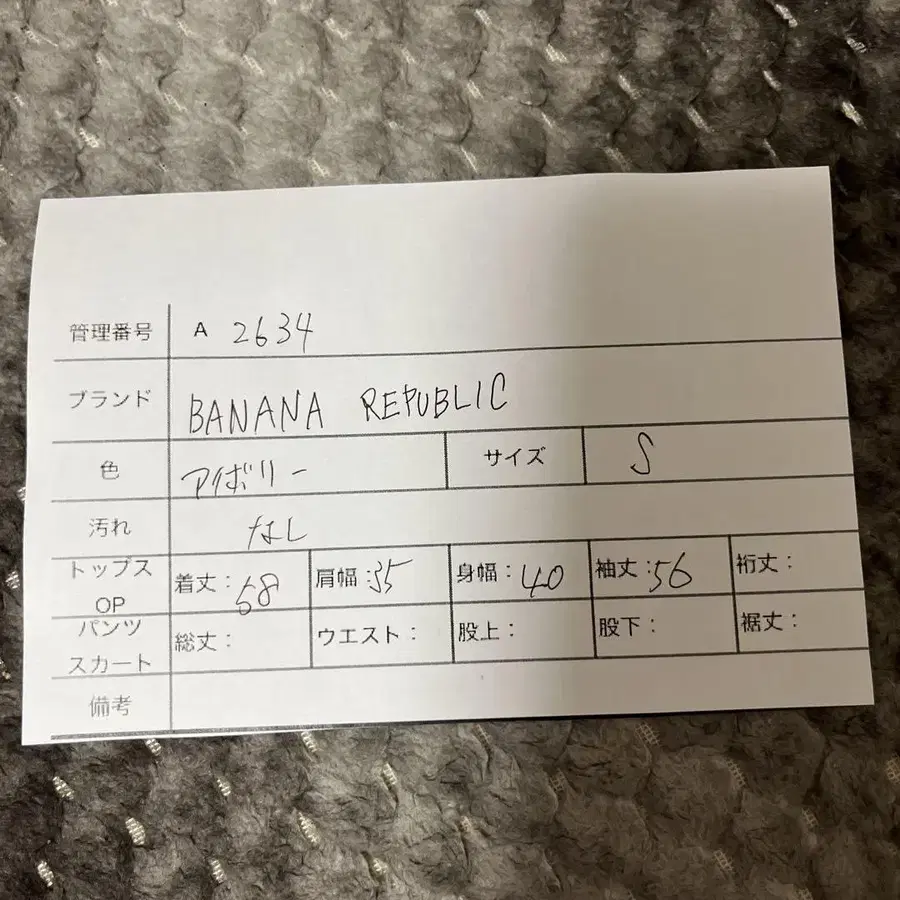 管理番号 A 2634
ブランド BANANA REPUBLIC
色 アイボリー サイズ S
汚れ なし
トップス OP 着丈: 58 肩幅: 35 身幅: 40 袖丈: 56 裄丈:
パンツ スカート 総丈: ウエスト: 股上: 股下: 裾丈:
備考